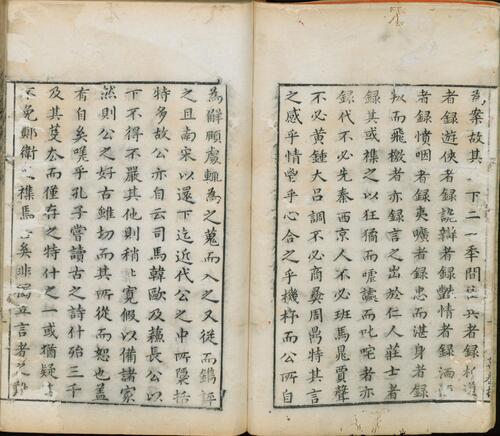 為案故其下二一季間者録
者録遊俠者録詭辯者録豔情者録酒
者録憤咽者録夷曠者録忠而湛身者録
叛而飛檄者亦録言之出於仁人莊士者
録其或襍之以狂獝而嘑讟而叱咤者亦
録代不必先秦西京人不必班馬晁賈聲
不必黃鍾大呂調不必商彞周鼎特其言
之感乎情瑩乎心合之乎機杼而公所自
為解頤處輒為之蒐而入之又從而鐫評
之且南宋以還下迄近代公之中所櫽括
特多故公亦自云司馬韓歐及蘇長公以
下不得不嚴其他則稍寬假以備諸家
然則公之好古雖切而其所從而恕也葢
有自矣嗟乎孔子嘗讀古之詩什殆三千
及其芟而僅存之特什之一或猶疑
不免鄭衛襍馬矣非立言者之難